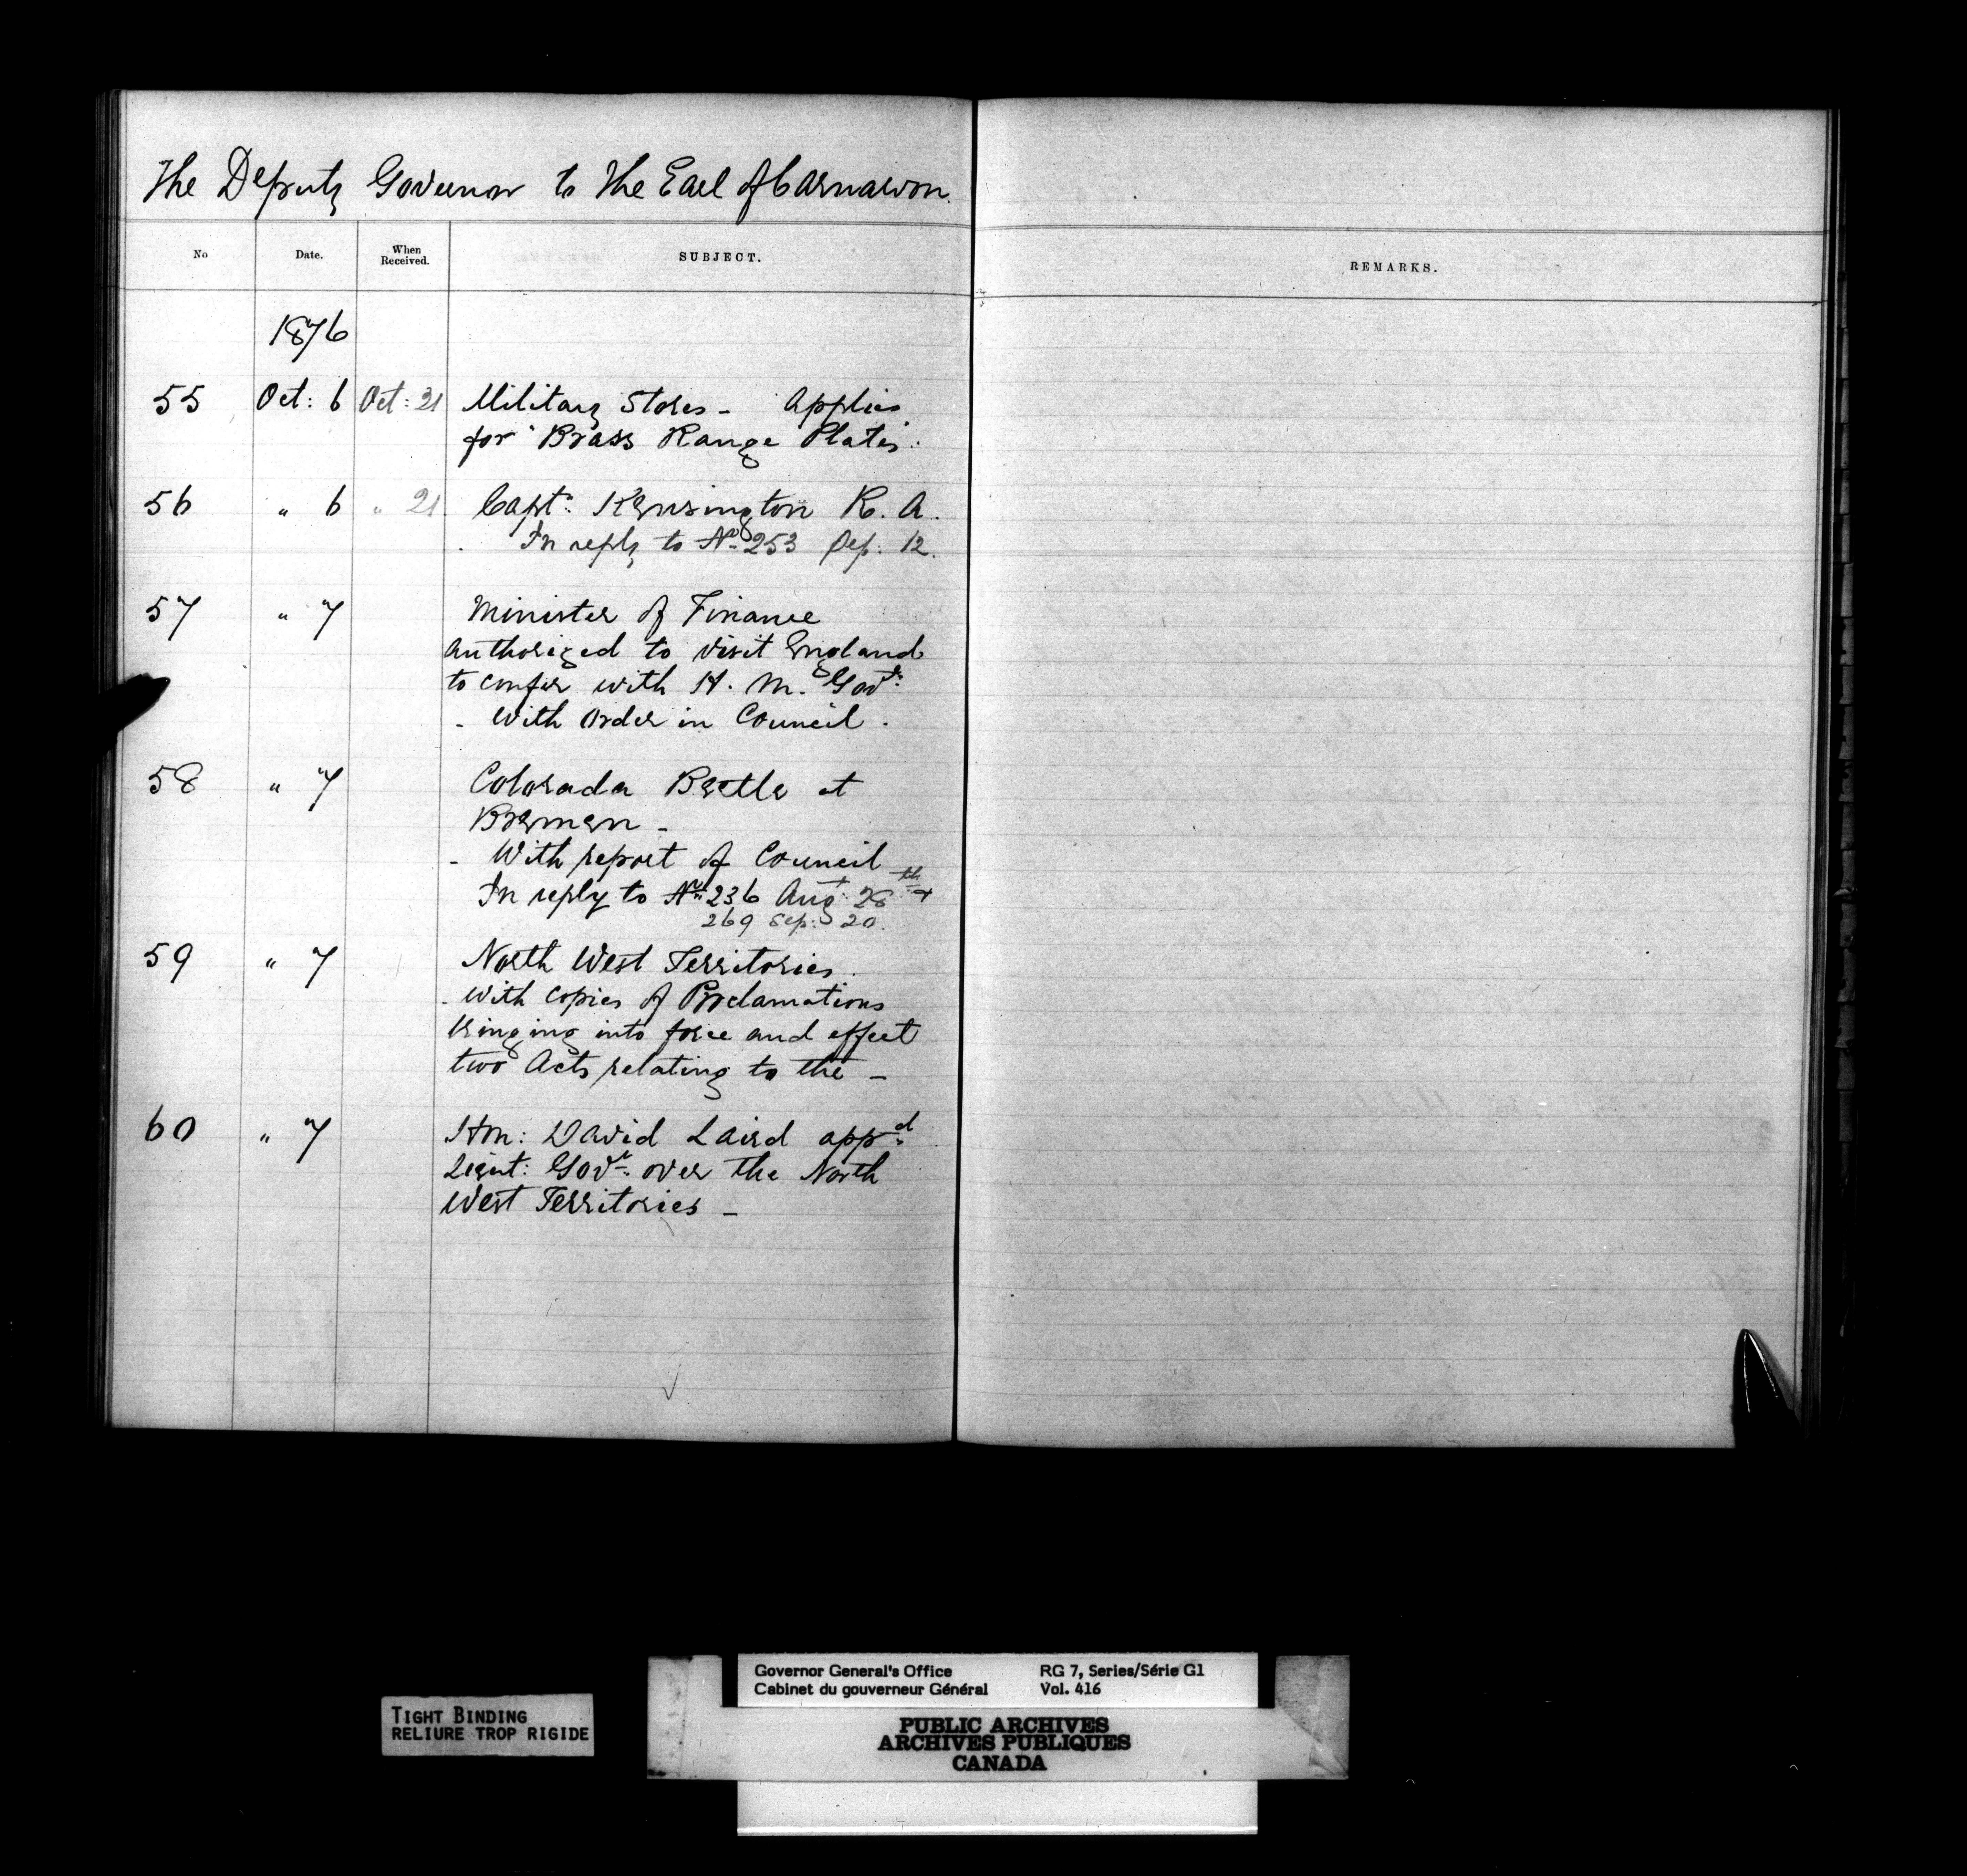 The Deputy Governor to The Earl of Carnarvon.
No Date. When Received. SUBJECT. REMARKS.
1876
55 Oct: 6 Oct: 21 Military Stores - Applies
for Brass Range Plates.
56 " 6 " 21 Captn: Kensington R. A.
In reply to No 253 Sep: 12.
57 " 7 Minister of Finance
authorized to visit England
to confer with H. M. Govt:
- With Order in Council.
58 " 7 Colorada Beetle at
Bremen -
- With report of Council
In reply to No 236 Augt: 28th +
269 Sep: 20.
59 " 7 North West Territories.
- With copies of Proclamations
bringing into force and effect
two Acts relating to the -
60 " 7 Hon: David Laird appd:
Lieut: Govr: over the North
West Territories -
TIGHT BINDING
RELIURE TROP RIGIDE
Governor General's Office RG 7, Series/Série G1
Cabinet du gouverneur Général Vol. 416
PUBLIC ARCHIVES
ARCHIVES PUBLIQUES
CANADA